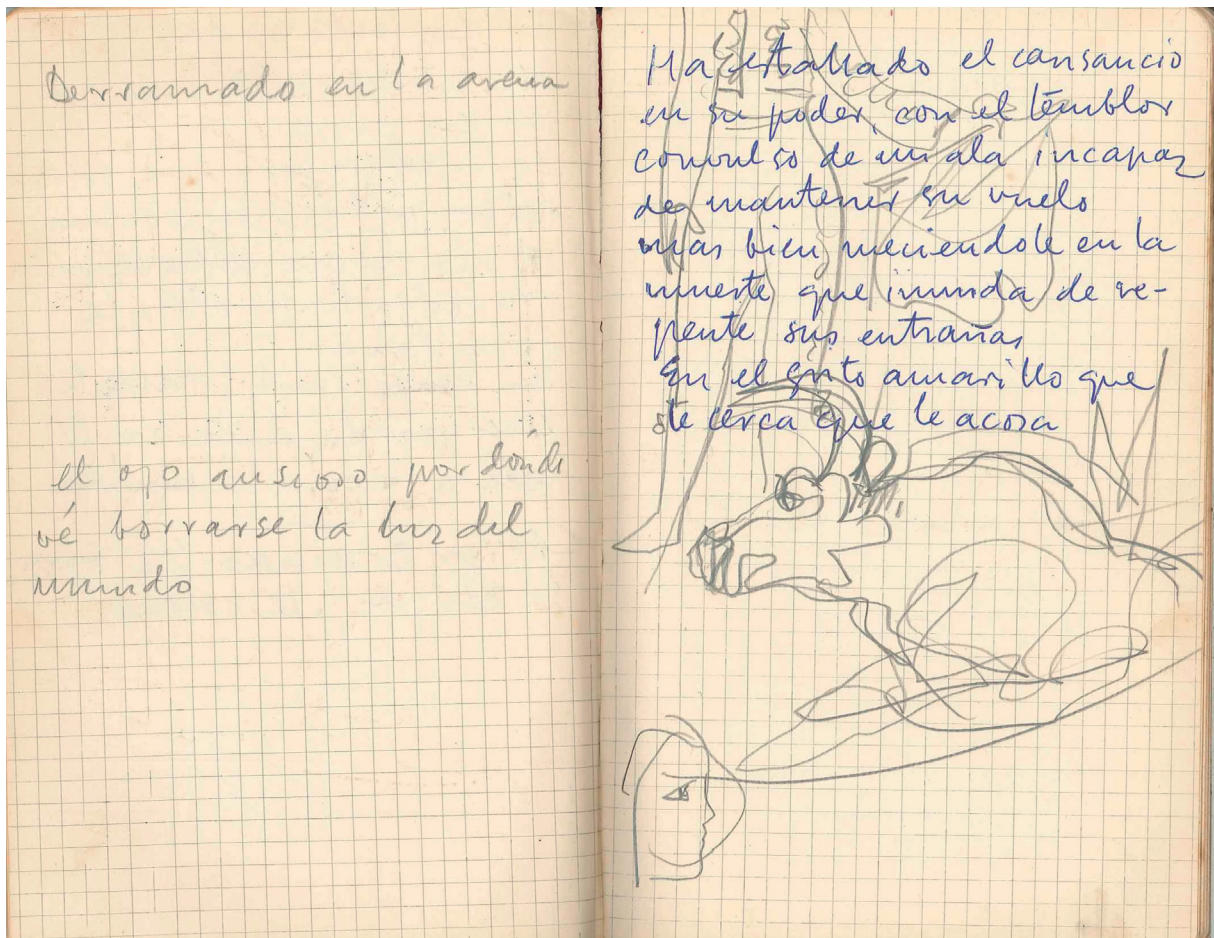 Derramado en la arena
el ojo ansioso por dónde
vé borrarse la luz del
mundo
Ha estallado el cansancio
en su poder, con el temblor
convulso de un ala incapaz
de mantener su vuelo
mas bien meciendole en la
muerte que inunda de re-
pente sus entrañas
En el grito amarillo que
le cerca que le acosa